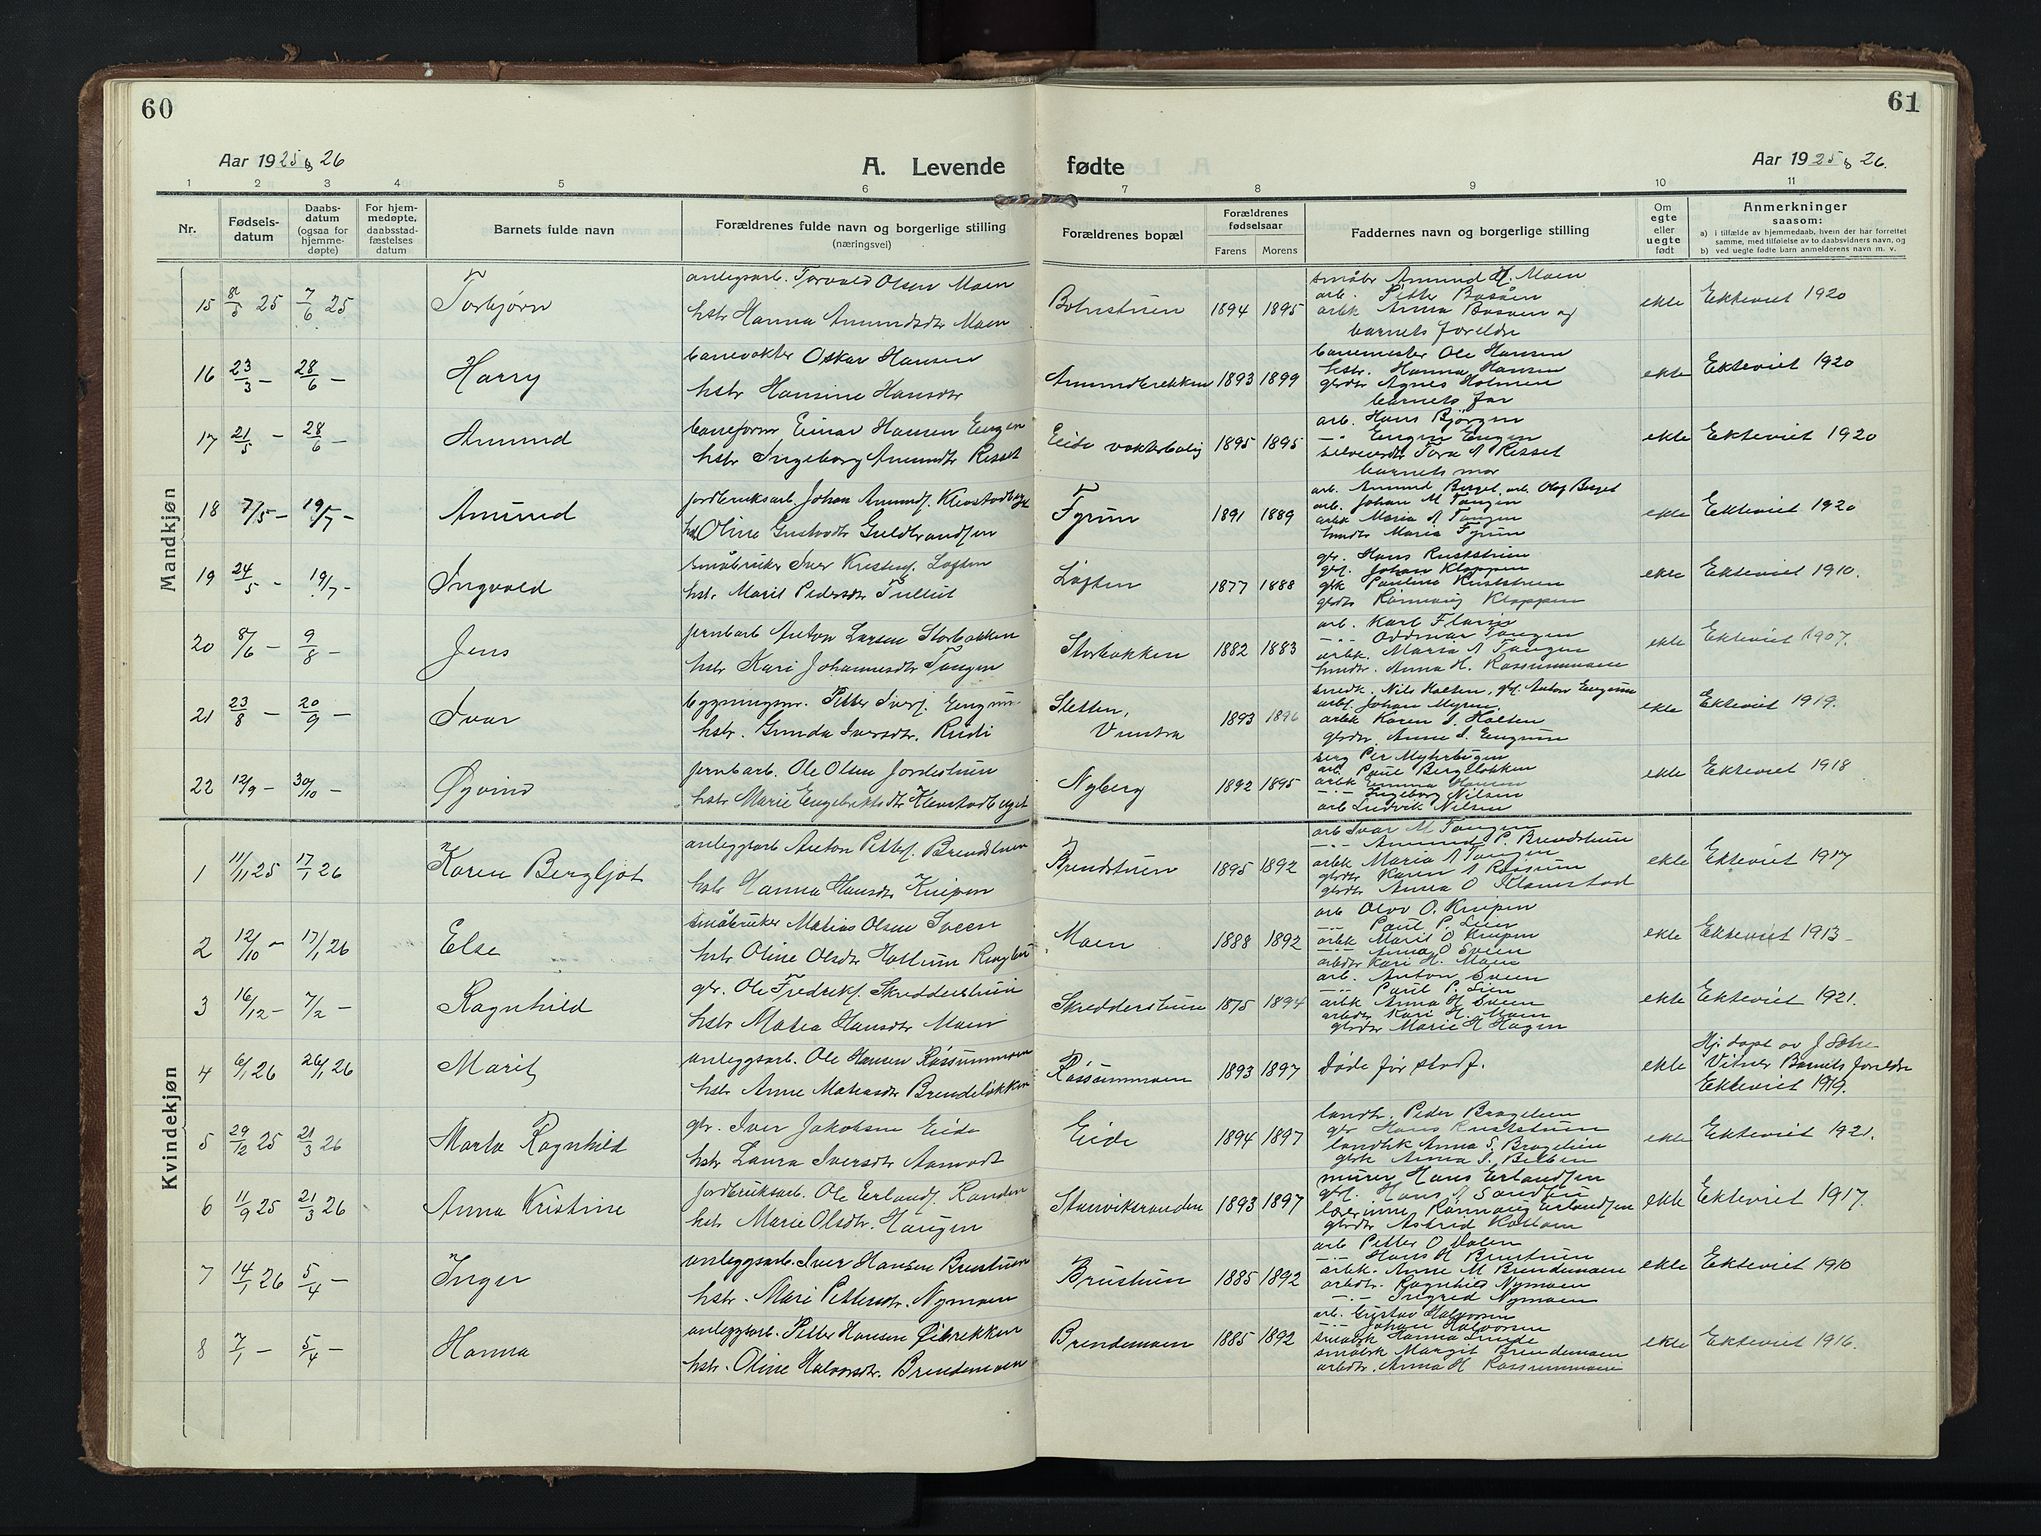 60
61
Aar 1925 & 26
A. Levende fødte
Aar 1925 & 26.
1 2 3 4 5 6 7 8 9 10 11
Nr.
Fødsels-
datum
Daabs-
datum
(ogsaa for
hjemme-
døpte)
For hjem-
medøpte,
daabsstad-
fæstelses
datum
Barnets fulde navn
Forældrenes fulde navn og borgerlige stilling
(næringsvei)
Forældrenes bopæl
Forældrenes
fødselsaar
Farens Morens
Faddernes navn og borgerlige stilling
Om
egte
eller
uegte
født
Anmerkninger
saasom:
a) i tilfælde av hjemmedaab, hvem der har forrettet
samme, med tilføielse av to daabsvidners navn, og
b) ved uegte fødte barn anmelderens navn m. v.
Mandkjøn
15 8/5 25 7/6 25 Torbjørn
anlegsarb. Torvald Olsen Moen
hstr Hanna Amundsdtr Moen
1894 1895
småbr Amund H. Moen
arb. Petter Bossen
arbk Anna Bossen og
barnets foreldre
ekte Ekteviet 1920
16 23/3 – 28/6 – Harry
banevokter Oskar Hansen
hstr Hansine Hansdtr
Amundbrekken 1893 1899
banemester Ole Hansen
hstr. Hanna Hansen
gbrdtr Agnes Holmen
barnets far
ekte Ekteviet 1920
17 21/5 – 28/6 – Amund
baneform Einar Hansen Engen
hstr Ingeborg Amundtr Risset
Eide vokterbolig 1895 1895
arb. Hans Bjørgen
–"– Engen Engen
Tora A Risset
barnets mor
ekte Ekteviet 1920
18 7/5 – 19/7 – Amund
jordbruksarb. Johan Amundf. Klevstadberget
hstr Oline Gustavdtr Guldbrandsen
Fyrun 1891 1889
arb. Amund Berget, arb. Olaf Berget
arb. Johan M Tangen
arbk Maria A Tangen
Maria Fyrun
ekte Ekteviet 1920
19 24/5 – 19/7 – Ingvald
småbruker Iver Kristenf. Løften
hstr. Marit Pedersdtr Tullut
Løften 1877 1888
gbr. Hans Ruststuen
gbf. Johan Kloppen
gbk Pauline Ruststuen
gbrdtr Rønnaug Kloppen
ekte Ekteviet 1910.
20 8/6 – 9/8 – Jens
jernbarb Anton Larsen Storbakken
hstr Kari Johannesdtr Tangen
Storbakken 1882 1883
arb. Karl Flaten
–"– Oddmar Tangen
arbk. Maria A Tangen
Anna H. Rossummoen
ekte Ekteviet 1907.
21 23/8 – 20/9 – Ivar
bygningssn. Petter Iverf. Engum
hstr. Gunda Iversdtr. Rudi
Sletten,
Vinstra
1893 1896
smedk. Nils Holten, gbf. Anton Engum
arbf. Johan Myren,
arbk Karen S. Holten
gbrdtr. Anne I. Engum
ekte Ekteviet 1919.
22 12/9 – 30/10 – Øyvind
jernbarb. Ole Olsen Jordestuen
hstr Marie Engebrektsdtr Klevstadberget
Nyberg 1892 1895
Per Myhrbugen
arb. Paul Bergelokken
arbk Emma Hansen
–"– Ingeborg Nilsen
arb Ludvik Nilsen
ekte Ekteviet 1918
Kvindekjøn
1 11/11 25 17/1 26 Karen Bergljot
anleggsarb Anton Petterf. Brendstuen
hstr Hanna Hansdtr Knipen
Brendstuen 1895 1892
arb Ivar M Tangen
–"– Amund P. Brendstuen
arbk Maria A Tangen
gbrdtr Karen A Rossum
gbrdtr Anna O Klomstad
ekte Ekteviet 1917
2 12/10 – 17/1 26 Else
småbruker Matias Olsen Sveen
hstr Oline Olsdtr Hattrem Ringbu
Moen 1888 1892
arb Olov O. Knipen
–"– Paul P. Lien
arbk Marit O Knipen
–"– Anna O Sveen
arbdtr Kari H. Moen
ekte Ekteviet 1913 –
3 16/12 – 7/2 – Ragnhild
gbr. Ole Fredrikf. Skredderstuen
hstr Matea Hansdtr Moen
Skredderstuen 1875 1894
arb. Anton Sveen
–"– Paul P. Lien
arbk Anna H Sveen
arbdtr Kari H. Moen
gbrdtr Marie H Hagen
ekte Ekteviet 1921.
4 6/1 26 26/1 26 Marit
anleggsarb. Ole Hansen Rossummoen
hstr. Anne Mateasdtr Brendeløkken
Rossummoen 1893 1897
døde før stadf.
ekte
Hj. døpt av J Sæhre
Vitner Barnets foreldre
Ektevict 1919.
5 29/12 25 21/3 26 Marta Ragnhild
gbr. Iver Jakobsen Eide
hstr Laura Iversdtr Aamodt
Eide 1894 1897
landh. Peder Bragelien
gbr Hans Ruststuen
landhk Anna S. Bragelien
gbrk Anna I. Belben
ekte Ektevict 1921.
6 11/9 25 21/3 26 Anna Kristine
jordbruksarb. Ole Erlandf. Randen
hstr Marie Olsdtr. Haugen
Storvikeranden 1893 1897
murer Hans Erlandsen
gbf. Hans A Sandsen
lærerinne Rønnaug Erlandsen
gbrdtr Astrid Kollom
ekte Ektevict 1917.
7 14/1 26 5/4 – Inger
anleggsarb. Iver Hansen Brustuen
hstr. Mari Pettersdtr. Nymoen
Brustuen 1885 1892
arb Petter O Dalen
–"– Hans H Brustuen
arbk. Anne M Brendemoen
arbdtr. Ragnhild Nymoen
–"– Ingrid Nymoen
ekte Ektevict 1910
8 7/1 – 5/4 – Hanna
anleggsarb. Petter Hansen Øibrekken
hstr. Oline Halvorsdtr. Brendemoen
Brendemoen 1885 1892
arb. Gustav Halvorsen
–"– Johan Halvorsen
småbk Hanna Linde
småbk Margit Brendemoen
arbdtr. Anna H Rossummoen
ekte Ektevict 1916.